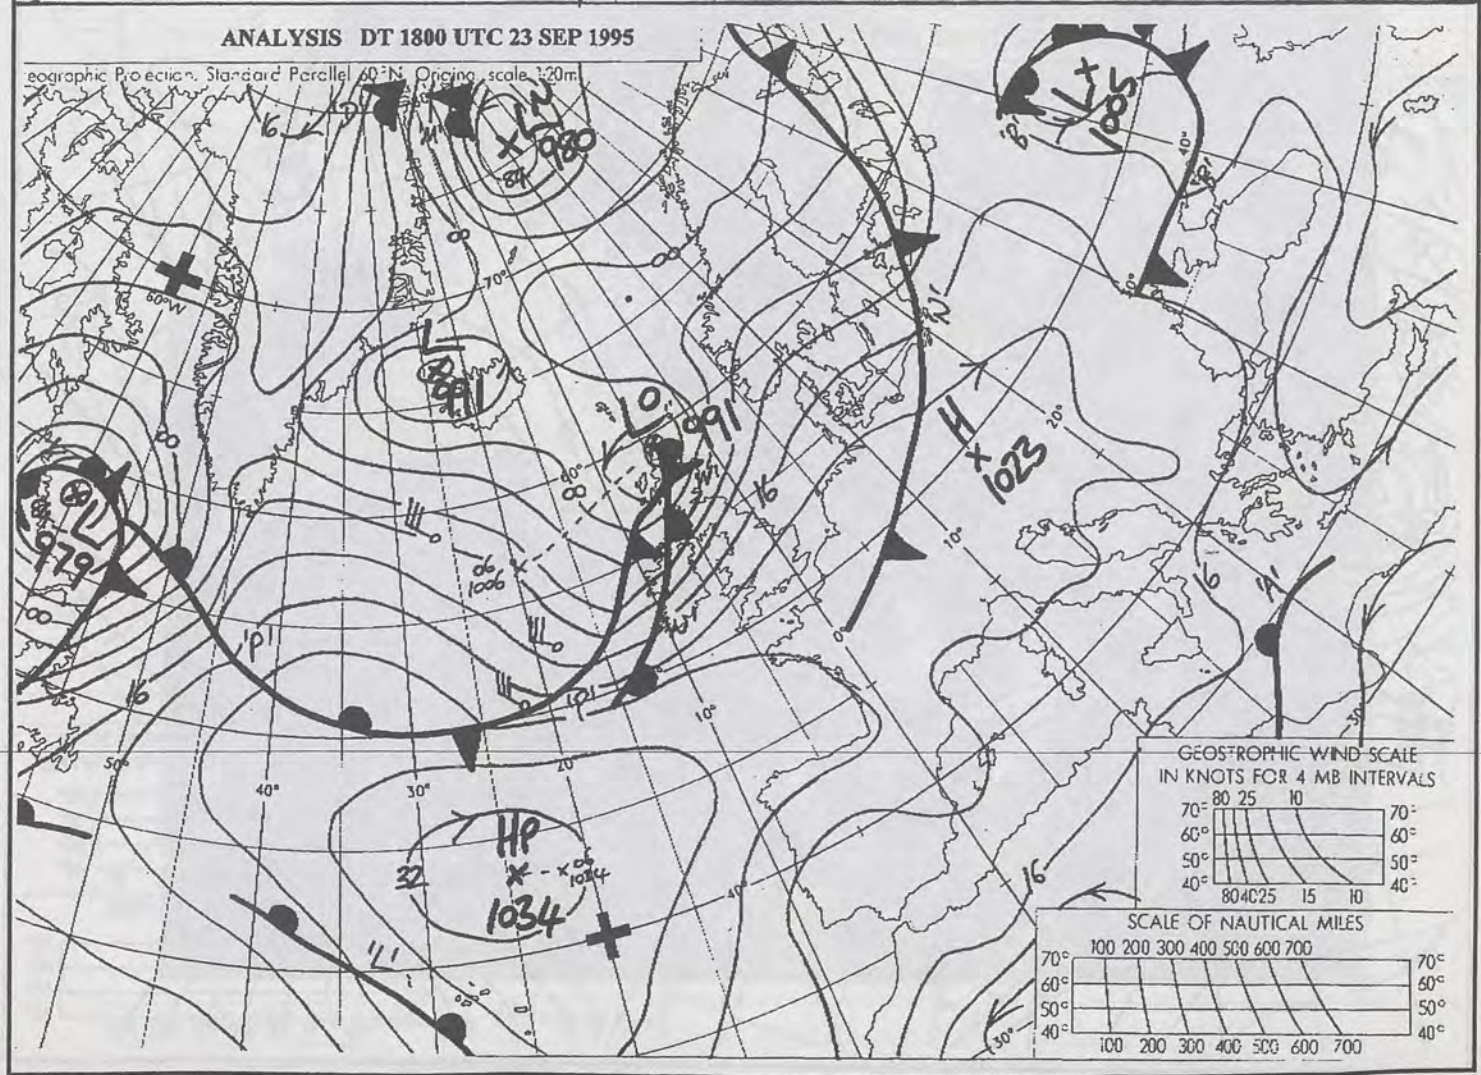 ANALYSIS DT 1800 UTC 23 SEP 1995
eographic Projection. Standard Parallel 60°N Original scale 1:20m
16
'D'
'M'
LN
980
84
L
1005
'B'
40°
'R'
00
70°
00
60°W
'N'
L
991
LO
991
H
1023
20°
10°
00
60°
00
16
'W'
L
979
00
06
1006
16
'A'
'P'
'W'
0°
16
'P'
10°
30°
50°
40°
30°
20°
HP
32
06
1034
1034
40°
'L'
16
30°
GEOSTROPHIC WIND SCALE
IN KNOTS FOR 4 MB INTERVALS
80 25 10
70° 70°
60° 60°
50° 50°
40° 40°
80 40 25 15 10
SCALE OF NAUTICAL MILES
100 200 300 400 500 600 700
70° 70°
60° 60°
50° 50°
40° 40°
100 200 300 400 500 600 700